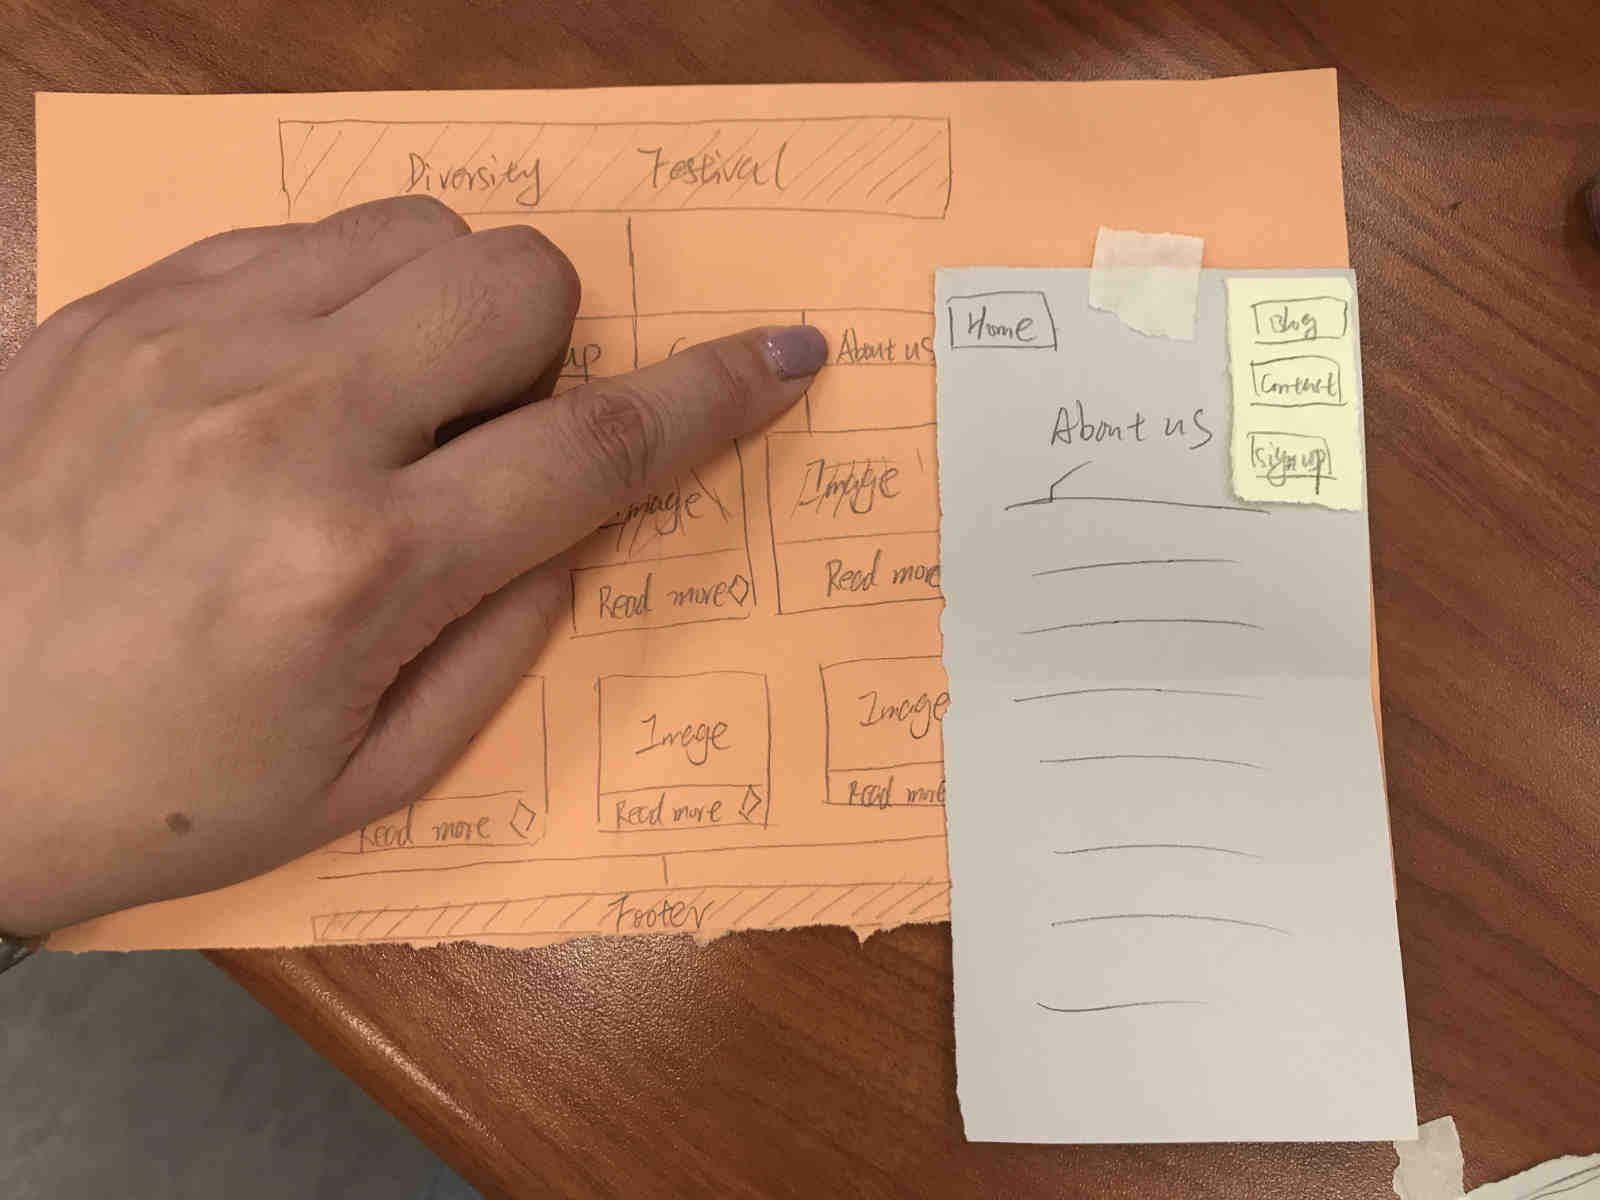 Diversity Festival
up
About us
Image
Image
Read more
Read more
Image
Image
Read more
Read more
Read more
Footer
Home
About us
Blog
Contact
Sign up